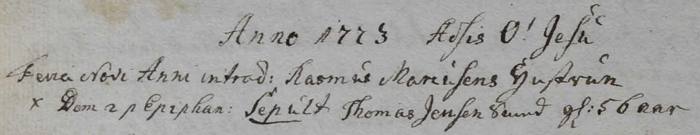 Anno 1773 Adsis O! Jesu
Feria Novi Anni introd: Rasmus Mariusens Hustrue
x Dom 2 p Epiphan: Sepult Thomas Jensen Lund gl: 56 aar